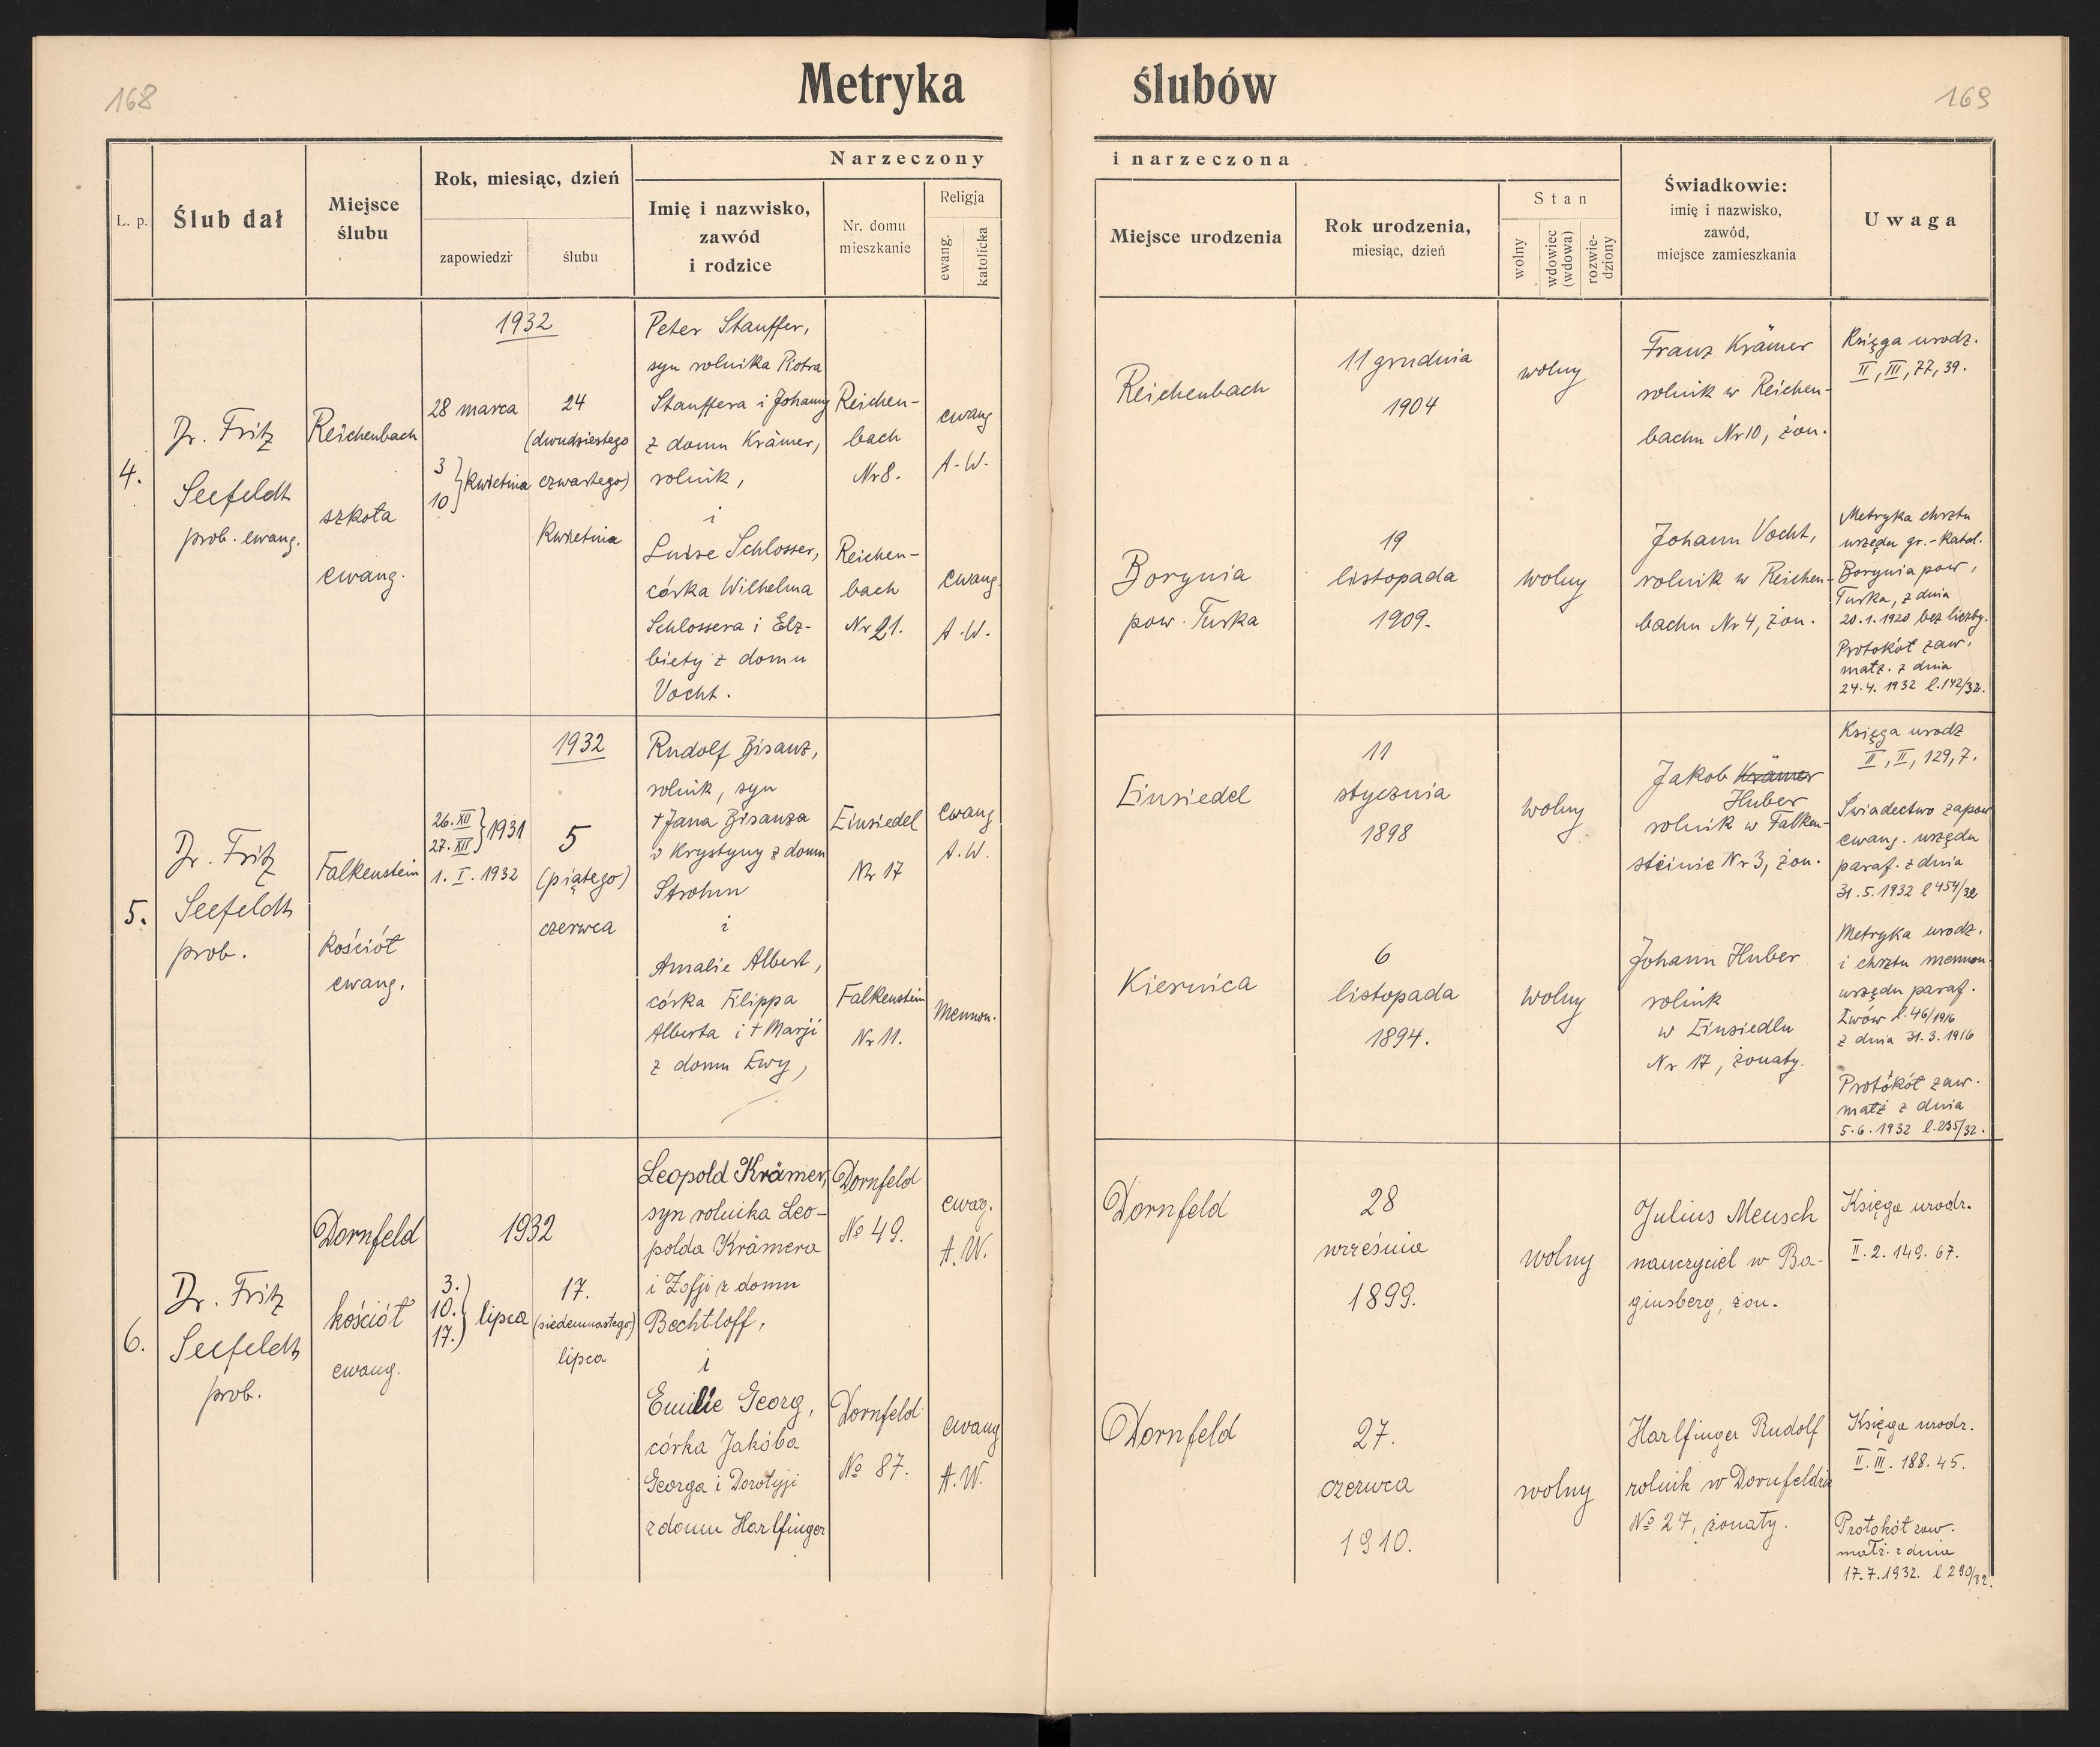 168
Metryka ślubów
169
L. p.
Ślub dał
Miejsce
ślubu
Rok, miesiąc, dzień
zapowiedzi
ślubu
Narzeczony
Imię i nazwisko,
zawód
i rodzice
Nr. domu
mieszkanie
Religja
ewang.
katolicka
i narzeczona
Miejsce urodzenia
Rok urodzenia,
miesiąc, dzień
Stan
wolny
wdowiec
(wdowa)
rozwie-
dziony
Świadkowie:
imię i nazwisko,
zawód,
miejsce zamieszkania
Uwaga
4.
Dr. Fritz
Seefeldt
prob. ewang.
Reichenbach
szkoła
ewang.
1932
28 marca
3
10
} kwietnia
24
(dwudziestego
czwartego)
kwietnia
Peter Stauffer,
syn rolnika Piotra
Stauffera i Johanny
z domu Krämer,
rolnik,
i
Luise Schlosser,
córka Wilhelma
Schlossera i Elż-
biety z domu
Vocht.
Reichen-
bach
Nr 8.
Reichen-
bach
Nr 21.
ewang
A.W.
ewang.
A.W.
Reichenbach
Borynia
pow. Turka
11 grudnia
1904
19
listopada
1909.
wolny
wolny
Franz Krämer
rolnik w Reichen-
bachu Nr 10, żon.
Johann Vocht,
rolnik w Reichen-
bachu Nr 4, żon.
Księga urodz.
II, III, 77, 39.
Metryka chrztu
urzędu gr.-katol.
Borynia pow.
Turka, z dnia
20.1.1920 bez liczby.
Protokół zaw.
małż. z dnia
24.4. 1932 l.142/32.
5.
Dr. Fritz
Seefeldt
prob.
Falkenstein
kościół
ewang.
26. XII
27. XII
} 1931
1. I. 1932
1932
5
(piątego)
czerwca
Rudolf Bisanz,
rolnik, syn
† Jana Bisanza
i Krystyny z domu
Strohm
i
Amalie Albert,
córka Filippa
Alberta i † Marji
z domu Ewy,
Einsiedel
Nr 17
Falkenstein
Nr 11.
ewang
A.W.
Mennon.
Einsiedel
Kiernica
11
stycznia
1898
6
listopada
1894.
wolny
wolny
Jakob Krämer
Huber
rolnik w Falken-
steinie Nr 3, żon.
Johann Huber
rolnik
w Einsiedlu
Nr 17, żonaty.
Księga urodz
II, II, 129, 7.
Świadectwo zapow
ewang. urzędu
paraf. z dnia
31.5.1932 l 454/32
Metryka urodz.
i chrztu mennon.
urzędu paraf.
Lwów l.46/1916
z dnia 31.3.1916
Protokół zaw.
małż z dnia
5.6.1932 l.235/32.
6.
Dr. Fritz
Seefeldt
prob.
Dornfeld
kościół
ewang.
1932
3.
10.
17.
} lipca
17.
(siedemnastego)
lipca
Leopold Krämer,
syn rolnika Leo-
polda Krämera
i Zofji z domu
Bechtloff,
i
Emilie Georg,
córka Jakóba
Georga i Dorotyji
z domu Harlfinger
Dornfeld
№ 49.
Dornfeld
№ 87.
ewag.
A.W.
ewang
A.W.
Dornfeld
Dornfeld
28
września
1899.
27.
czerwca
1910.
wolny
wolny
Julius Mensch
nauczyciel w Ba-
ginsberg, żon.
Harlfinger Rudolf
rolnik w Dornfeldzie
№ 27, żonaty.
Księga urodz.
II. 2. 149. 67.
Księga urodz.
II. III. 188. 45.
Protokół zaw.
małż. z dnia
17.7.1932. l 290/32.